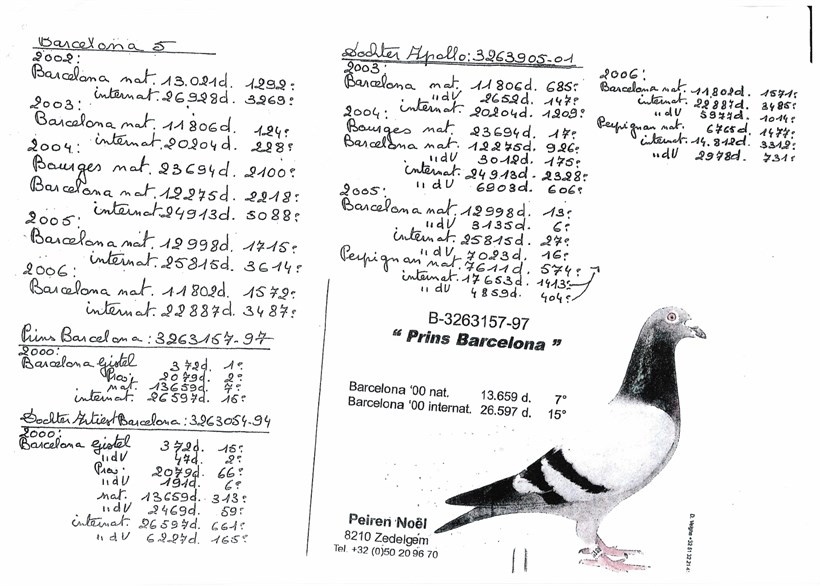 Barcelona 5
2002:
Barcelona nat. 13.021d. 1292e
internat. 26928d. 3269e
2003:
Barcelona nat. 11806d. 124e
internat. 20204d. 228e
2004:
Bourges nat. 23694d. 2100e
Barcelona nat. 12275d. 2218e
internat. 24913d. 5088e
2005:
Barcelona nat. 12998d. 1715e
internat. 25815d. 3614e
2006:
Barcelona nat. 11802d. 1572e
internat. 22887d. 3487e
Prins Barcelona: 3263157-97
2000:
Barcelona Gistel 372d. 1e
Prov. 2079d. 2e
nat. 13659d. 7e
internat. 26597d. 15e
Dochter Artiest Barcelona: 3263054-94
2000:
Barcelona Gistel 372d. 15e
"dV 47d. 2e
Prov. 2079d. 66e
"dV 191d. 6e
nat. 13659d. 313e
"dV 2469d. 59e
internat. 26597d. 661e
"dV 6227d. 165e
Dochter Apollo: 3263905-01
2003:
Barcelona nat. 11806d. 685e
"dV 2652d. 147e
internat. 20204d. 1209e
2004:
Bourges nat. 23694d. 17e
Barcelona nat. 12275d. 926e
"dV 3012d. 175e
internat. 24913d. 2328e
"dV 6903d. 606e
2005:
Barcelona nat. 12998d. 13e
"dV 3135d. 6e
internat. 25815d. 27e
"dV 7023d. 16e
Perpignan nat. 7611d. 574e
internat. 17653d. 1413e
"dV 4859d. 404e
2006:
Barcelona nat. 11.802d. 1571e
internat. 22887d. 3485e
"dV 5977d. 1014e
Perpignan nat. 6765d. 1477e
internat. 14.812d. 3312e
"dV 2978d. 731e
B-3263157-97
“ Prins Barcelona ”
Barcelona '00 nat. 13.659 d. 7°
Barcelona '00 internat. 26.597 d. 15°
Peiren Noël
8210 Zedelgem
Tel. +32 (0)50 20 96 70